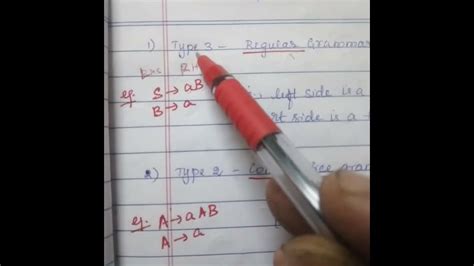 1) Type 3 - Regular Grammar
eg. S → aB , left side is a
B → a rt side is a
2) Type 2 - gram
eg. A → aAB
A → a